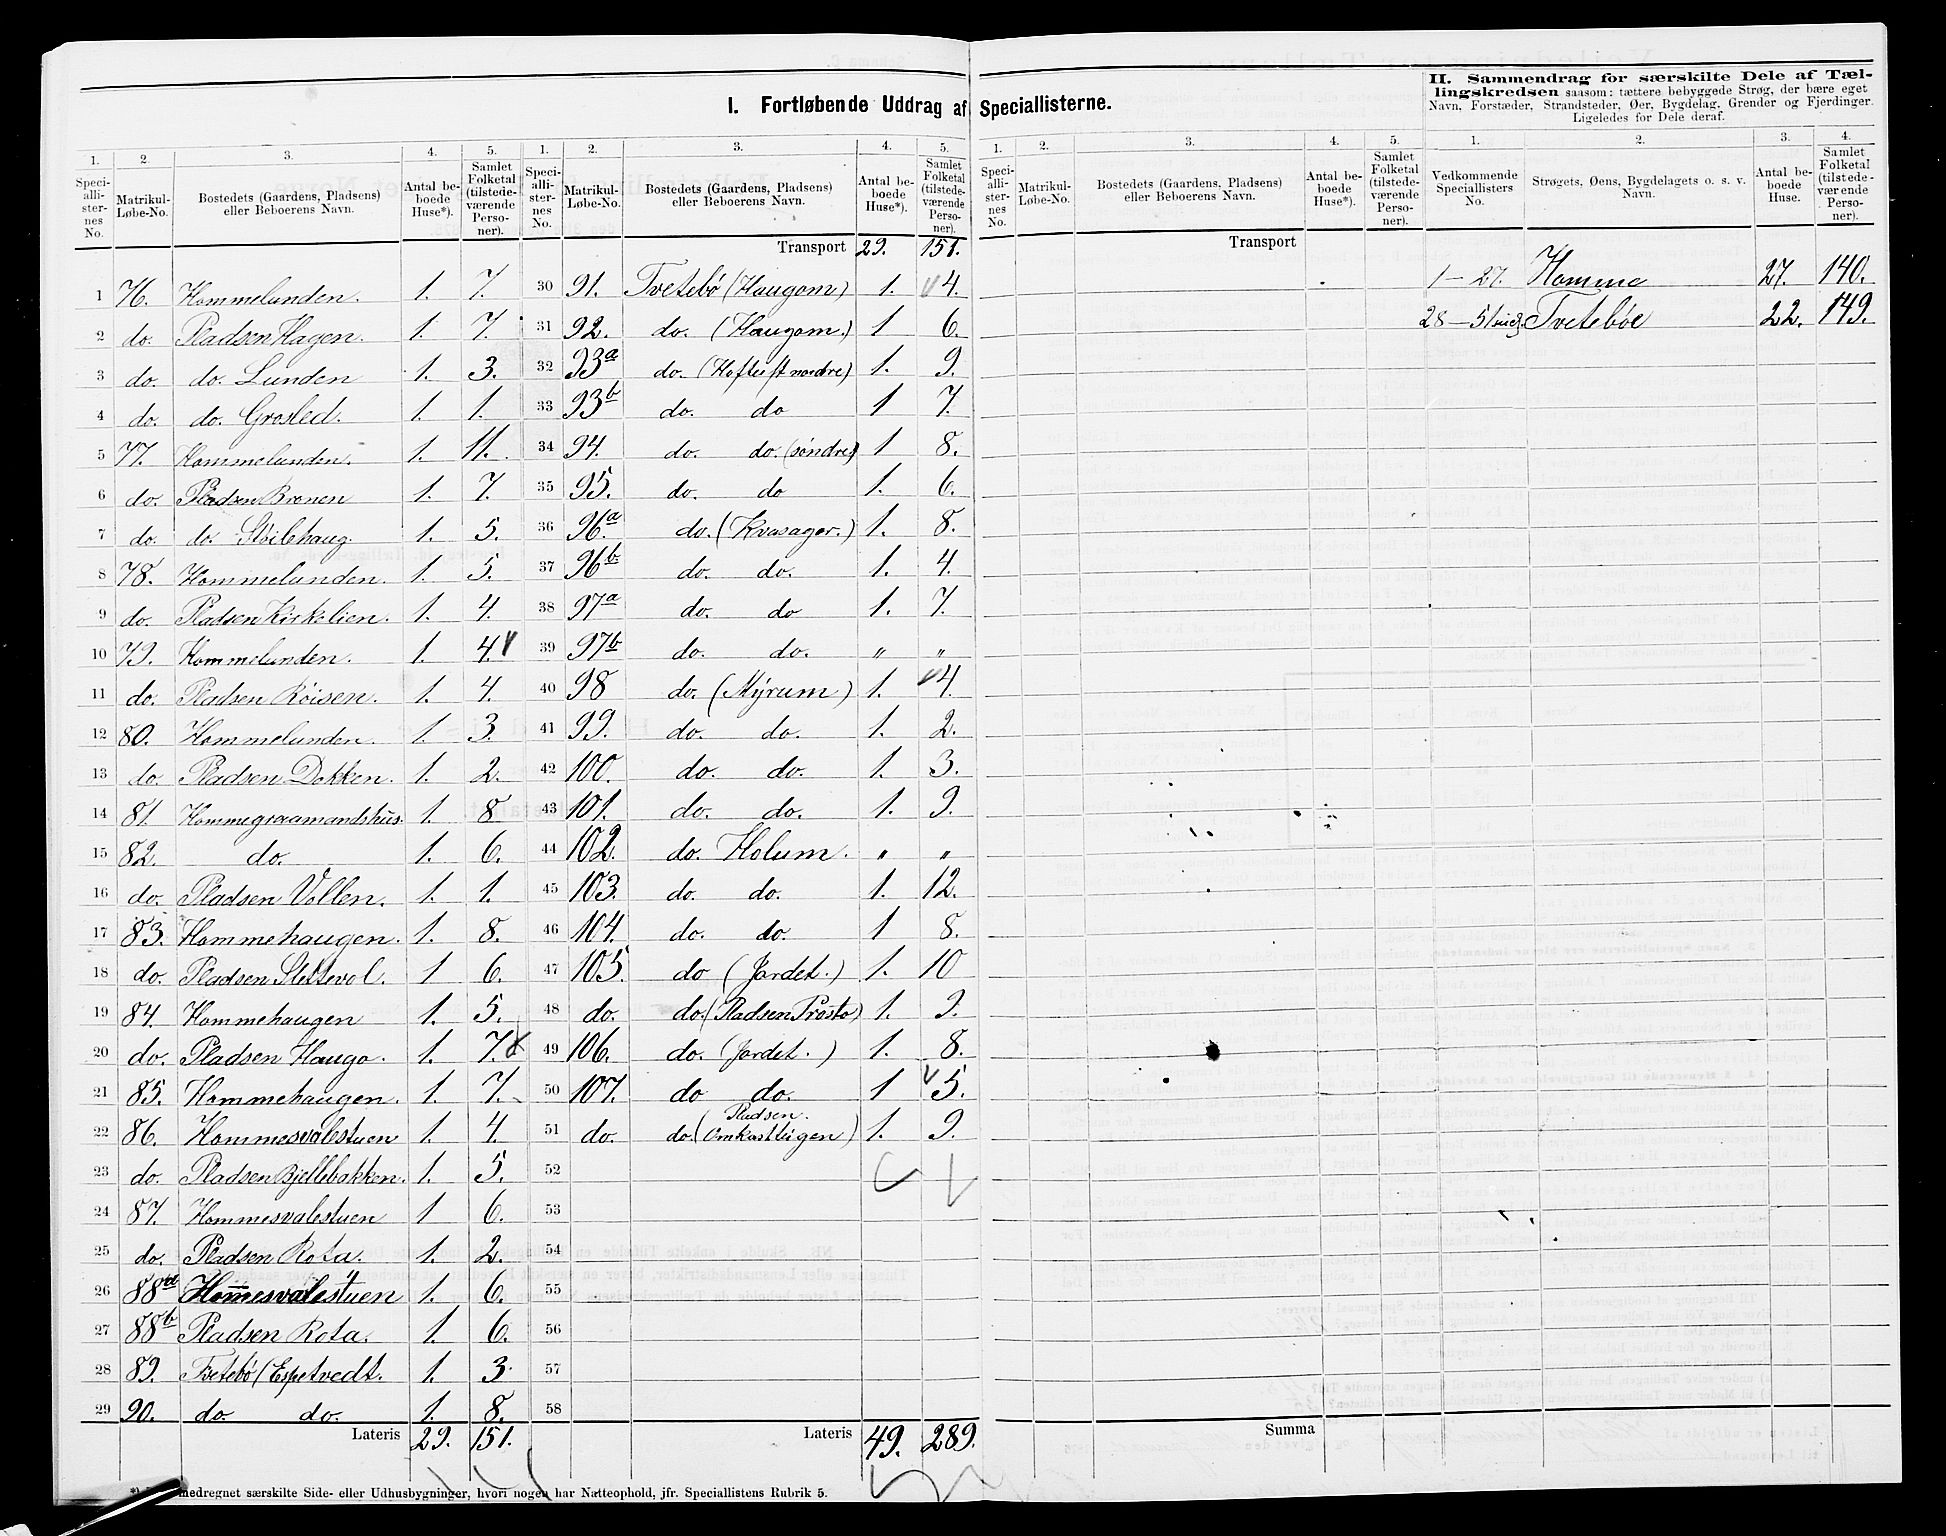 I. Fortløbende Uddrag af Speciallisterne.
II. Sammendrag for særskilte Dele af Tællingskredsen saasom: tættere bebyggede Strøg, der bære eget Navn, Forstæder, Strandsteder, Øer, Bygdelag, Grender og Fjerdinger. Ligeledes for Dele deraf.
1. 2. 3. 4. 5. 1. 2. 3. 4. 5. 1. 2. 3. 4. 5. 1. 2. 3. 4.
Speciallisternes No. Matrikul-Løbe-No. Bostedets (Gaardens, Pladsens) eller Beboerens Navn. Antal beboede Huse*). Samlet Folketal (tilstedeværende Personer).
Speciallisternes No. Matrikul-Løbe-No. Bostedets (Gaardens, Pladsens) eller Beboerens Navn. Antal beboede Huse*). Samlet Folketal (tilstedeværende Personer).
Speciallisternes No. Matrikul-Løbe-No. Bostedets (Gaardens, Pladsens) eller Beboerens Navn. Antal beboede Huse*). Samlet Folketal (tilstedeværende Personer).
Vedkommende Speciallisters No. Strøgets, Øens, Bygdelagets o. s. v. Navn. Antal beboede Huse. Samlet Folketal (tilstedeværende Personer).
1 76. Hommelunden. 1. 7.
2 do. Pladsen Hagen. 1. 7.
3 do. do. Lunden 1. 3.
4 do. do. Grosled. 1. 1.
5 77. Hommelunden. 1. 11.
6 do. Pladsen Brenen 1. 7.
7 do. do. Støilehaug. 1. 5.
8 78. Hommelunden. 1. 5.
9 do. Pladsen Kirkelien. 1. 4.
10 79. Hommelunden. 1. 4.
11 do. Pladsen Røisen. 1. 4.
12 80. Hommelunden. 1. 3.
13 do. Pladsen Dokken. 1. 2.
14 81. Hommegraamandshus. 1. 8
15 82. do. 1. 6.
16 do. Pladsen Vollen. 1. 1.
17 83. Hommehaugen. 1. 8.
18 do. Pladsen Slettevol. 1 6.
19 84. Hommehaugen 1. 5.
20 do. Pladsen Haugo. 1. 7.
21 85. Hommehaugen. 1. 7.
22 86. Hommesvalestuen 1. 4.
23 do. Pladsen Bjellebakken. 1. 5.
24 87. Hommesvalestuen 1 6.
25 do. Pladsen Rota. 1. 2.
26 88a Hommesvalestuen 1. 6.
27 88b Pladsen Rota. 1. 6.
28 89. Tvetebø (Espetvedt. 1. 3.
29 90. do. do. 1. 8.
Lateris 29. 151.
Transport 29. 151.
30 91. Tvetebø (Haugom) 1. 4.
31 92. do. (Haugom.) 1 6.
32 93a do. (Hoftuft nordre) 1. 9.
33 93b do. do 1 7.
34 94. do. do. (søndre) 1 8.
35 95. do. do 1. 6.
36 96a do. (Kvasager.) 1. 8.
37 96b do. do. 1. 4.
38 97a do. do 1. 7.
39 97b do. do. " "
40 98 do. (Myrum) 1. 4.
41 99. do. do. 1. 2.
42 100. do. do. 1. 3.
43 101. do. do. 1. 9.
44 102. do. Holum. " "
45 103. do. do. 1. 12.
46 104. do. do. 1 8.
47 105. do (Jordet.) 1. 10
48 do. do. (Pladsen Prosto) 1. 9.
49 106. do. (Jordet.) 1. 8.
50 107. do do. 1 5.
51 do. do. (Pladsen. Omkastteigen) 1. 9.
52
53
54
55
56
57
58
Lateris 49. 289.
Transport
Summa
1–27. Homme 27. 140.
28–51 Tvetebøe 22. 149.
medregnet særskilte Side- eller Udhusbygninger, hvori nogen har Natteophold, jfr. Speciallistens Rubrik 5.